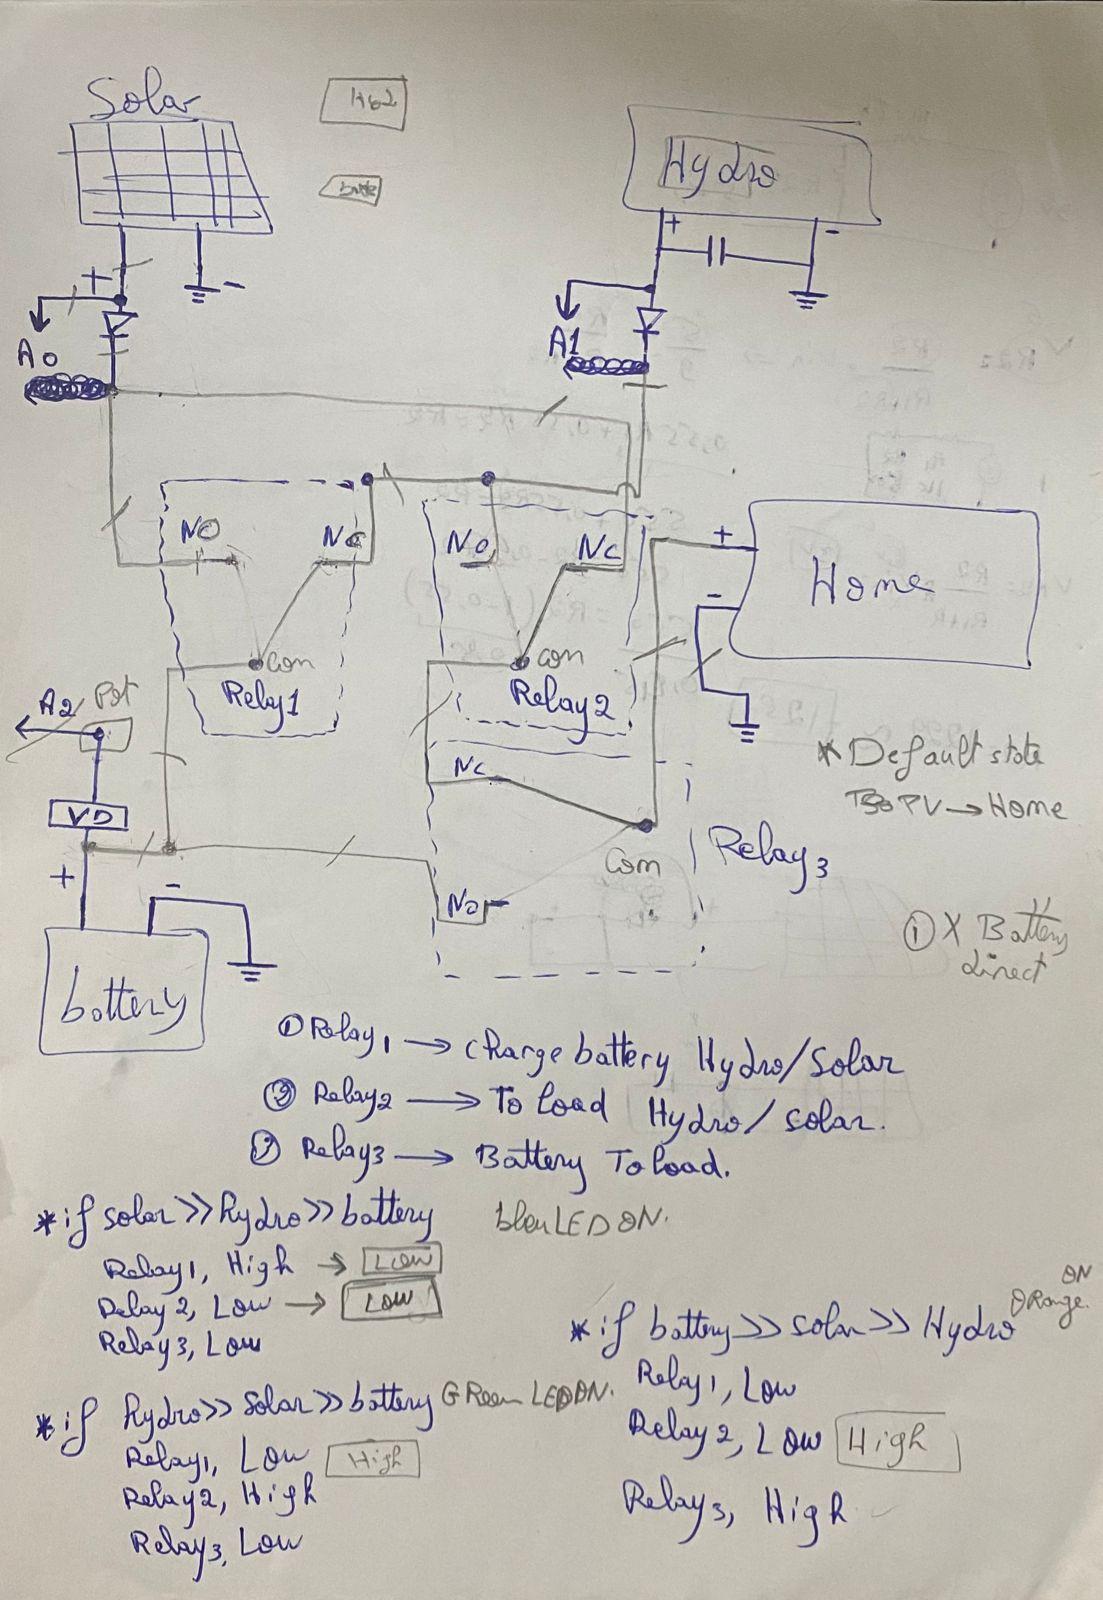 Solar
Hydro
+
-
+
-
A0
A1
NO
NC
NO
NC
+
-
Home
Com
Relay1
Com
Relay2
A2
Pot
VD
NC
Com
Relay3
NO
+
-
battery
* Default state
PV → Home
① X Battery
direct
① Relay1 → charge battery Hydro/Solar
Relay2 → To load Hydro/solar.
Relay3 → Battery To load.
* if solar >> Hydro >> battery
LED ON.
Relay1, High → Low
Relay2, Low → Low
Relay3, Low
* if Hydro >> Solar >> battery GReen LED ON.
Relay1, Low High
Relay2, High
Relay3, Low
ON
ORange.
* if battery >> solar >> Hydro
Relay1, Low
Relay2, Low High
Relay3, High